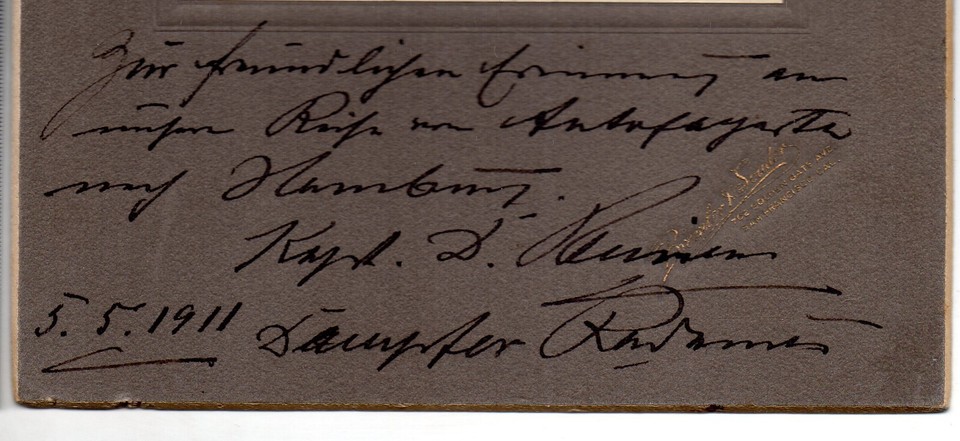 Zur freundlichen Erinnerung an
unsere Reise von Antofagasta
nach Hamburg.
Kapt. D.
5. 5. 1911 Dampfer Radames